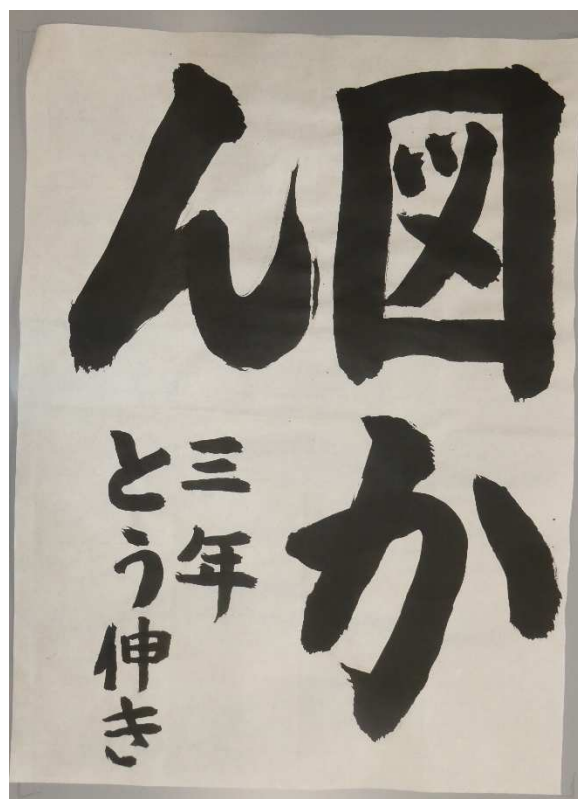 図か
ん
三年
とう伸き